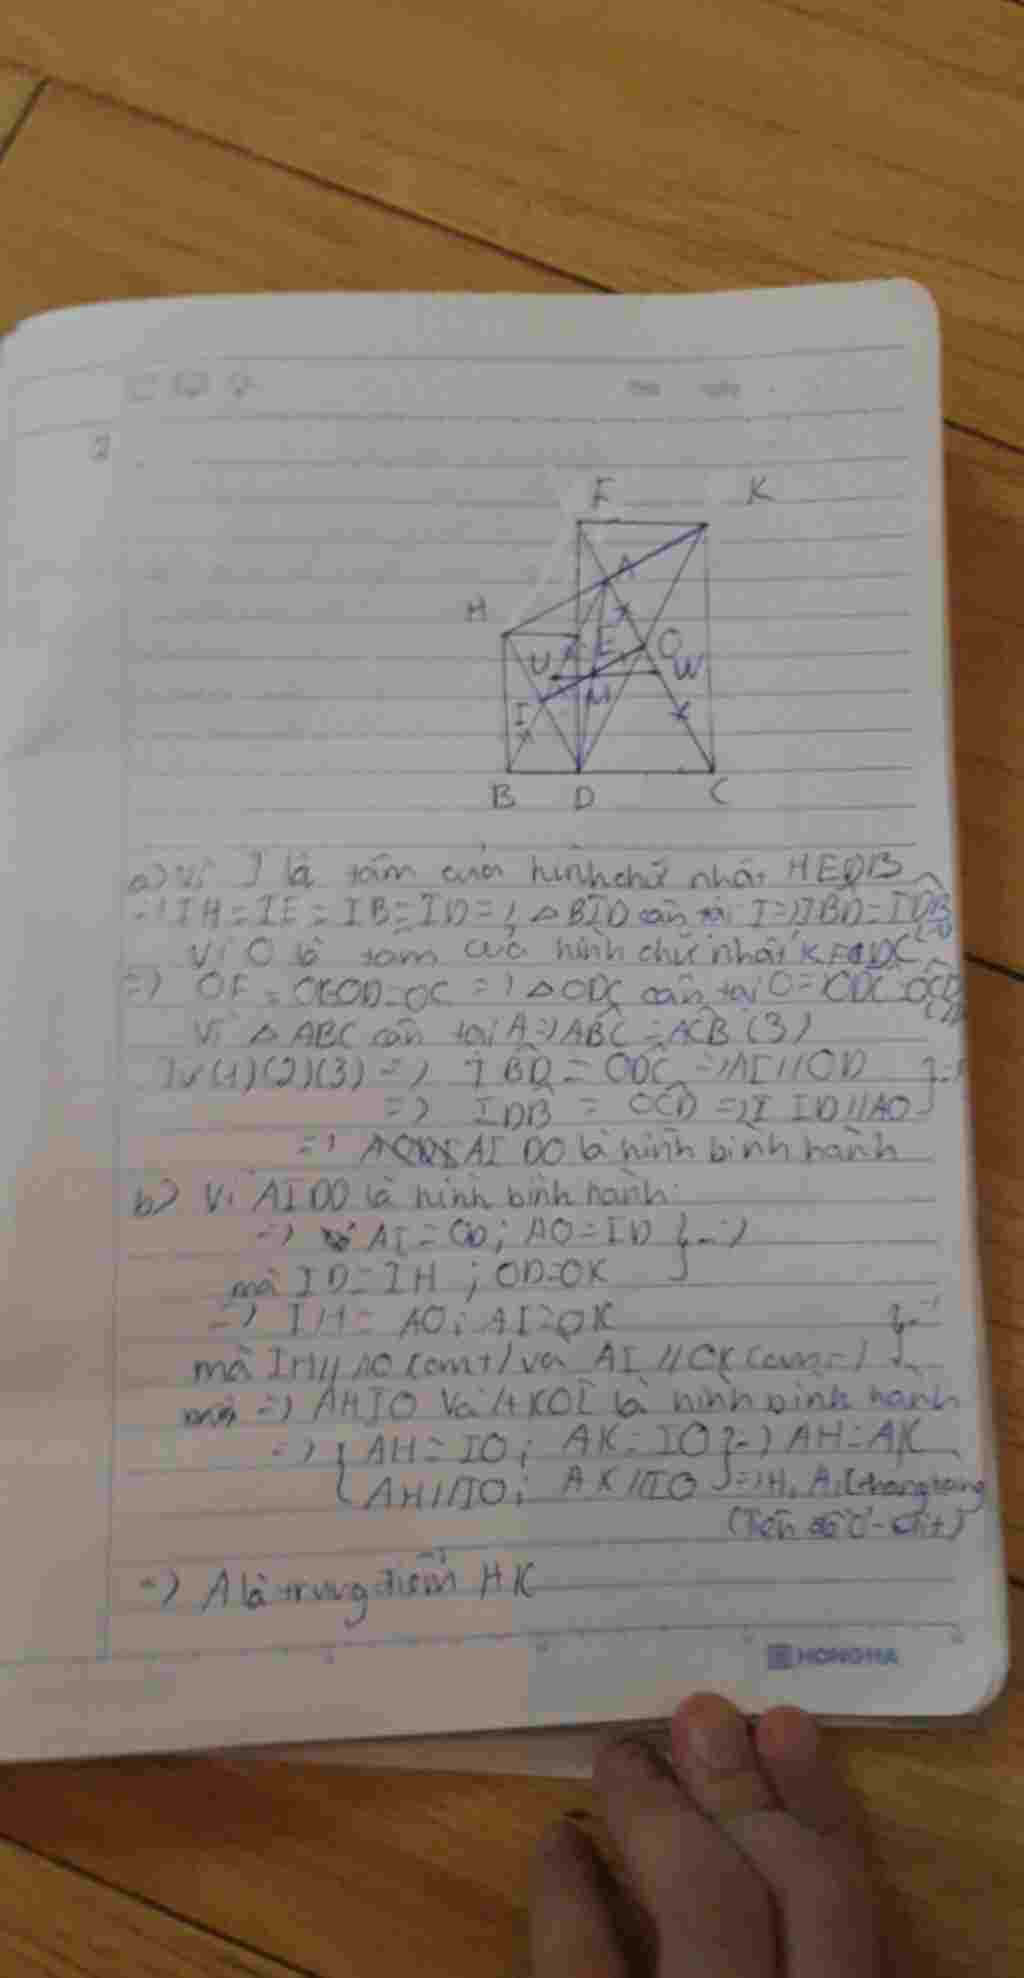 2
F K
A
H
E O
U W
I M
B D C
a) Vì I là tâm của hình chữ nhật HEDB
=) IH = IE = IB = ID =) △ BID cân tại I =) IBD = IDB
Vì O là tâm của hình chữ nhật KFDC
=) OF = OK=OD=OC =) △ ODC cân tại O = ODC OCD
Vì △ ABC cân tại A =) ABC = ACB (3)
Từ (1) (2) (3) =) IBD = ODC =) AI // OD
=) IDB = OCD =) ID // AO
=) AIDO là hình bình hành
b) Vì AIDO là hình bình hành
=) AI = OD; AO = ID } =)
mà ID = IH ; OD=OK
=) IH = AO; AI = OK
mà IH // AO (cmt) và AI // OK (cmt)
=) AHIO và AKOI là hình bình hành
=) { AH = IO; AK = IO } =) AH = AK
AH // IO; AK // IO =) H, A, thẳng hàng
(Tiên đề Ơ-clit)
=) A là trung điểm HK
HONG HA